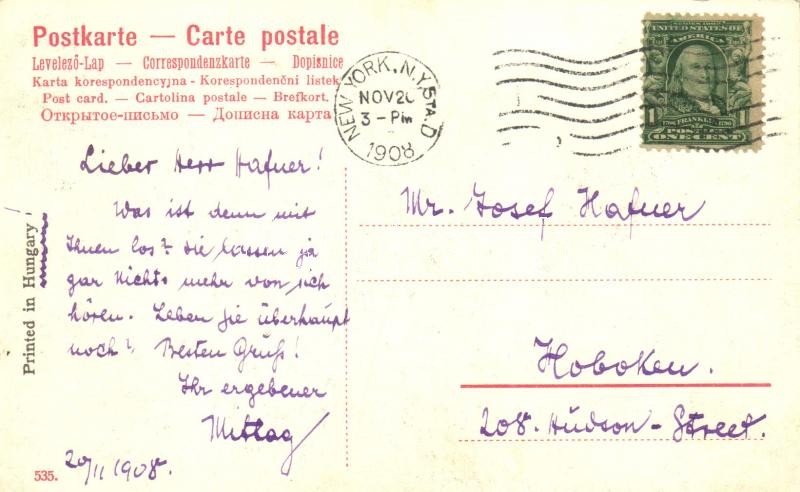 Postkarte — Carte postale
Levelező-Lap — Correspondenzkarte — Dopisnice
Karta korespondencyjna - Korespondenční listek
Post card. — Cartolina postale — Brefkort.
Открытое-письмо — Дописна карта
NEW YORK, N.Y. STA. D
NOV 20
3-PM
1908
SERIES 1902
UNITED STATES OF AMERICA
1 1
1706 FRANKLIN 1790
POSTAGE
ONE CENT
Lieber Herr Hafner!
Was ist denn mit
Ihnen los? Sie lassen ja
gar Nichts mehr von sich
hören. Leben Sie überhaupt
noch? Besten Gruß!
Ihr ergebener
Mittag
20/11 1908.
Mr. Josef Hafner
Hoboken.
208. Hudson-Street.
Printed in Hungary!
535.